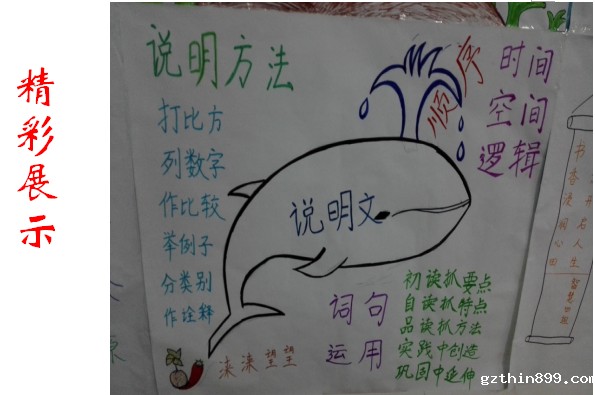 精彩展示
说明方法
打比方
列数字
作比较
举例子
分类别
作诠释
说明文
顺序
时间
空间
逻辑
词句
运用
初读抓要点
自读抓特点
品读抓方法
实践中创造
巩固中延伸
gzthin899.com